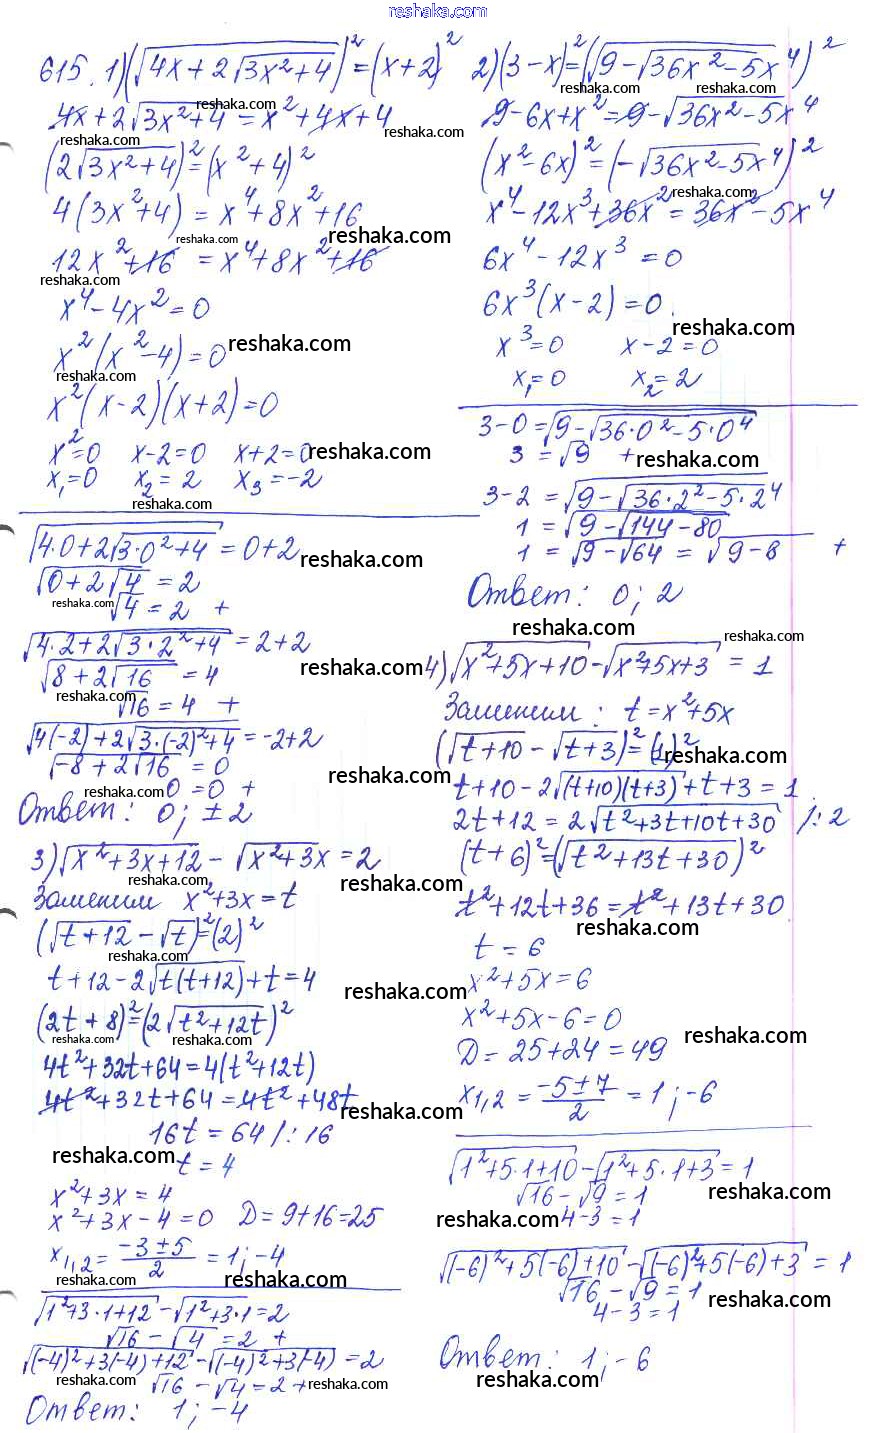 reshaka.com
615. 1) (√(4x+2√(3x²+4)))² = (x+2)²
4x+2√(3x²+4) = x²+4x+4
(2√(3x²+4))² = (x²+4)²
4(3x²+4) = x⁴+8x²+16
12x²+16 = x⁴+8x²+16
x⁴-4x² = 0
x²(x²-4) = 0
x²(x-2)(x+2) = 0
x²=0 x-2=0 x+2=0
x₁=0 x₂=2 x₃=-2
√(4·0+2√(3·0²+4)) = 0+2
√(0+2√4) = 2
√4 = 2 +
√(4·2+2√(3·2²+4)) = 2+2
√(8+2√16) = 4
√16 = 4 +
√(4(-2)+2√(3·(-2)²+4)) = -2+2
√(-8+2√16) = 0
0 = 0 +
Ответ: 0; ±2
3) √(x²+3x+12) - √(x²+3x) = 2
Заменим x²+3x=t
(√(t+12) - √t)² = (2)²
t+12-2√(t(t+12))+t = 4
(2t+8)² = (2√(t²+12t))²
4t²+32t+64 = 4(t²+12t)
4t²+32t+64 = 4t²+48t
16t = 64 /:16
t = 4
x²+3x = 4
x²+3x-4 = 0 D = 9+16 = 25
x₁,₂ = (-3±5)/2 = 1; -4
√(1²+3·1+12) - √(1²+3·1) = 2
√16 - √4 = 2 +
√((-4)²+3(-4)+12) - √((-4)²+3(-4)) = 2
√16 - √4 = 2 +
Ответ: 1; -4
2) (3-x)² = (√(9-√(36x²-5x⁴)))²
9-6x+x² = 9-√(36x²-5x⁴)
(x²-6x)² = (-√(36x²-5x⁴))²
x⁴-12x³+36x² = 36x²-5x⁴
6x⁴-12x³ = 0
6x³(x-2) = 0
x³=0 x-2=0
x₁=0 x₂=2
3-0 = √(9-√(36·0²-5·0⁴))
3 = √9 +
3-2 = √(9-√(36·2²-5·2⁴))
1 = √(9-√(144-80))
1 = √(9-√64) = √(9-8) +
Ответ: 0; 2
4) √(x²+5x+10) - √(x²+5x+3) = 1
Заменим: t=x²+5x
(√(t+10) - √(t+3))² = (1)²
t+10-2√((t+10)(t+3))+t+3 = 1
2t+12 = 2√(t²+3t+10t+30) /:2
(t+6)² = (√(t²+13t+30))²
t²+12t+36 = t²+13t+30
t = 6
x²+5x = 6
x²+5x-6 = 0
D = 25+24 = 49
x₁,₂ = (-5±7)/2 = 1; -6
√(1²+5·1+10) - √(1²+5·1+3) = 1
√16 - √9 = 1
4-3 = 1
√((-6)²+5(-6)+10) - √((-6)²+5(-6)+3) = 1
√16 - √9 = 1
4-3 = 1
Ответ: 1; -6